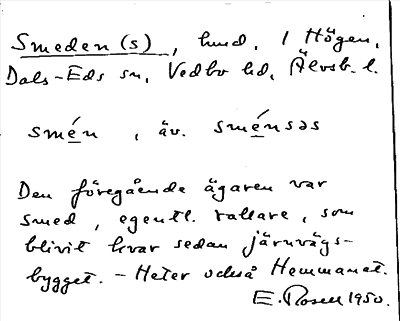 Smeden(s), hmd. i Högen,
Dals-Eds sn, Vedbo hd, Älvsb. l.
smén, äv. sménsəs
Den föregående ägaren var
smed, egentl. rallare, som
blivit kvar sedan järnvägs-
bygget. - Heter också Hemmanet.
E. Rosell 1950.